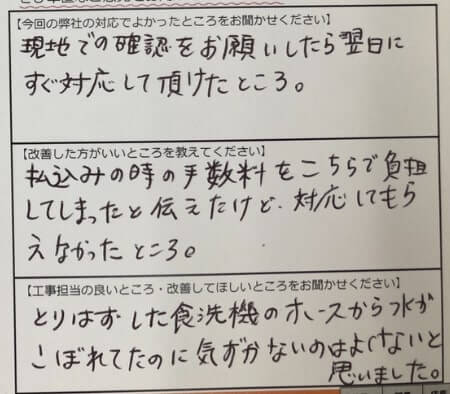 【今回の弊社の対応でよかったところをお聞かせください】
現地での確認をお願いしたら翌日に
すぐ対応して頂けたところ。
【改善した方がいいところを教えてください】
払込みの時の手数料をこちらで負担
してしまったと伝えたけど、対応してもら
えなかったところ。
【工事担当の良いところ・改善してほしいところをお聞かせください】
とりはずした食洗機のホースから水が
こぼれてたのに気ずかないのはよくないと
思いました。